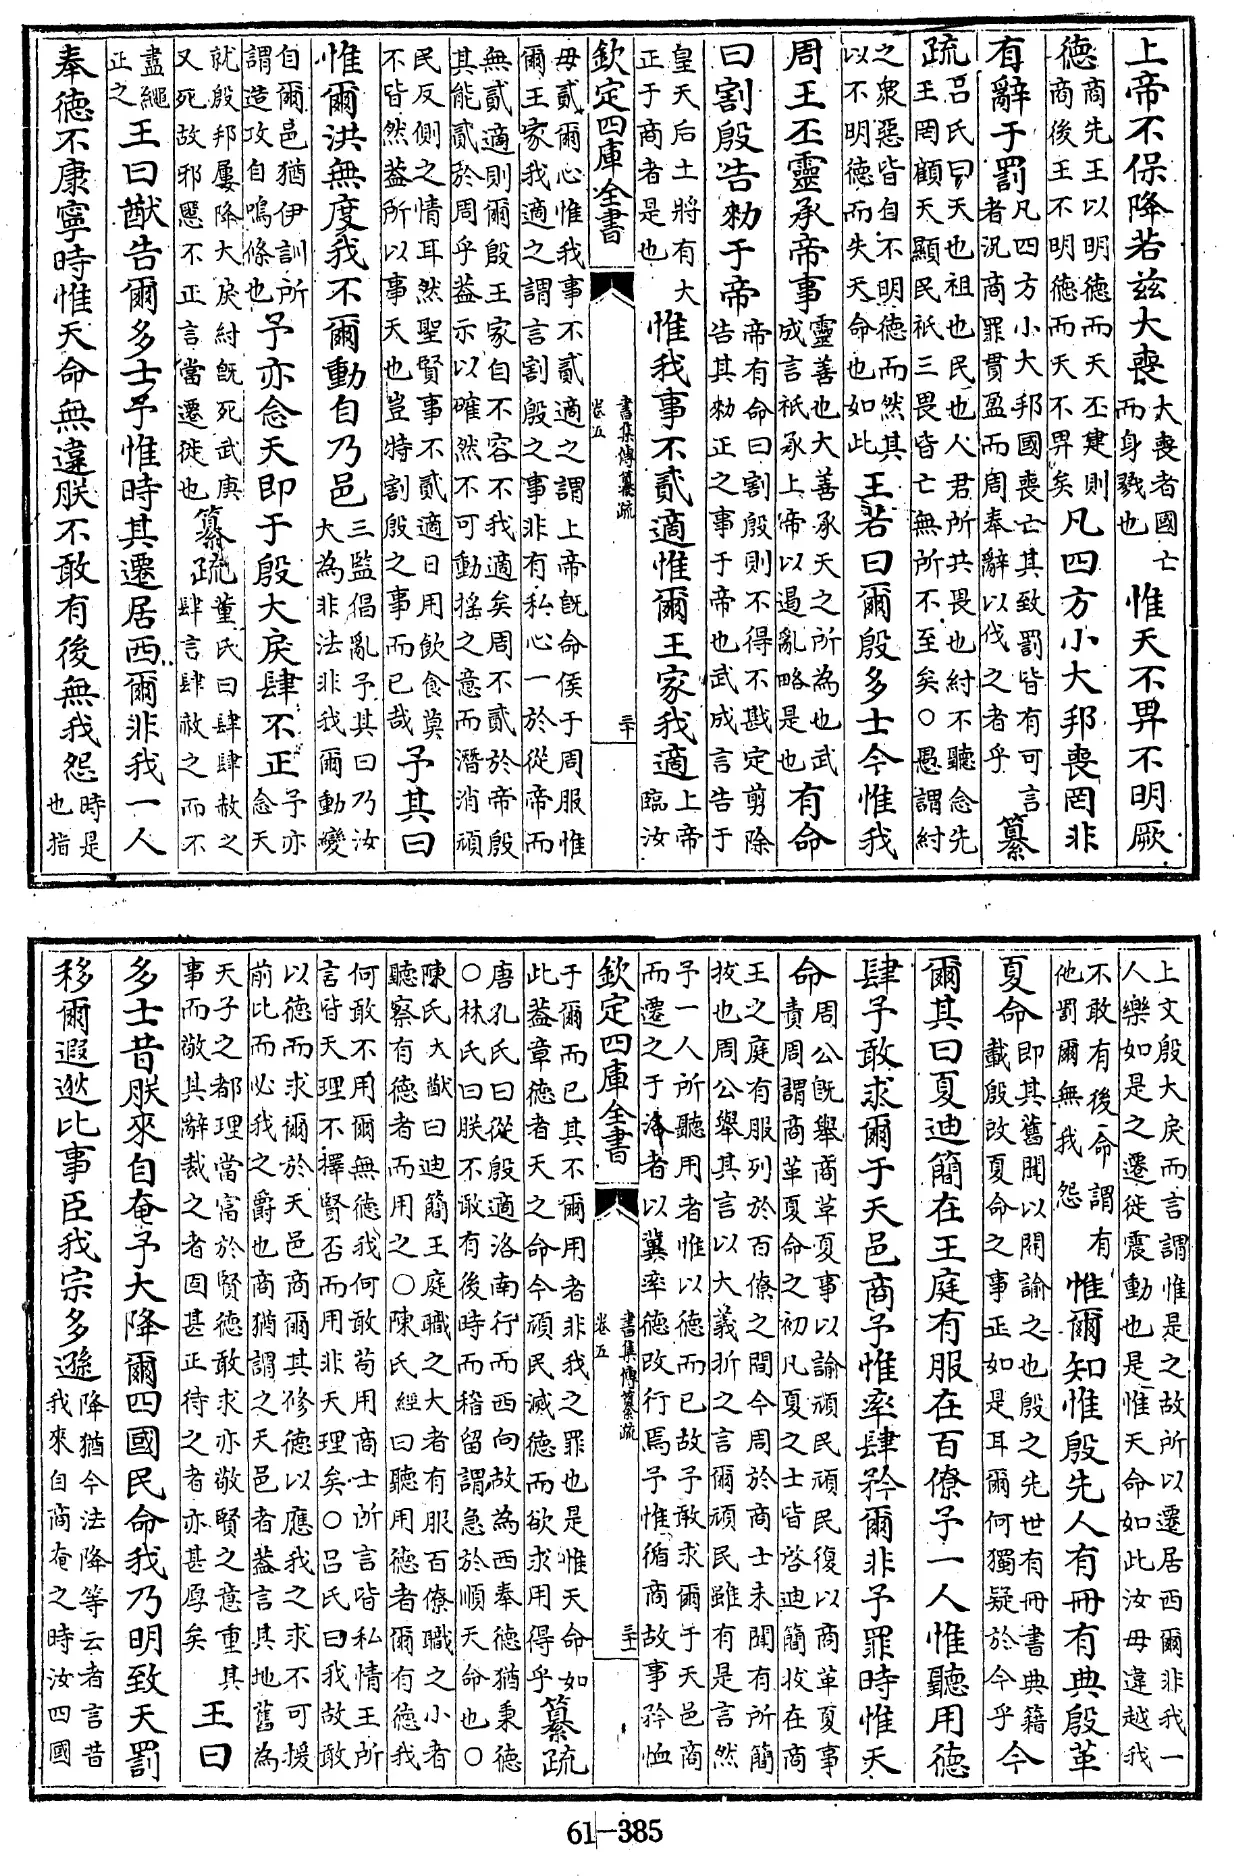 上帝不保降若兹大喪大喪者國亡而身戮也惟天不畀不明厥
德商先王以明德而天丕建則商後王不明德而天不畀矣凡四方小大邦喪罔非
有辭于罰凡四方小大邦國喪亡其致罰皆有可言者況商罪貫盈而周奉辭以伐之者乎纂
疏呂氏曰天也祖也民也人君所共畏也紂不聽念先王罔顧天顯民祇三畏皆亡無所不至矣○愚謂紂
之衆惡皆自不明德而然其以不明德而失天命也如此王若曰爾殷多士今惟我
周王丕靈承帝事靈善也大善承天之所為也武成言祇承上帝以遏亂略是也有命
曰割殷告勑于帝帝有命曰割殷則不得不戡定剪除告其勑正之事于帝也武成言告于
皇天后土將有大正于商者是也惟我事不貳適惟爾王家我適上帝臨汝
欽定四庫全書 書集傳纂疏 卷五 三十
毋貳爾心惟我事不貳適之謂上帝旣命侯于周服惟爾王家我適之謂言割殷之事非有私心一於從帝而
無貳適則爾殷王家自不容不我適矣周不貳於帝殷其能貳於周乎蓋示以確然不可動搖之意而潛消頑
民反側之情耳然聖賢事不貳適日用飲食莫不皆然蓋所以事天也豈特割殷之事而已哉予其曰
惟爾洪無度我不爾動自乃邑三監倡亂予其曰乃汝大為非法非我爾動變
自爾邑猶伊訓所謂造攻自鳴條也予亦念天即于殷大戾肆不正予亦念天
就殷邦屢降大戾紂旣死武庚又死故邪慝不正言當遷徙也纂疏董氏曰肆肆赦之肆言肆赦之而不
盡繩正之王曰猷告爾多士予惟時其遷居西爾非我一人
奉德不康寧時惟天命無違朕不敢有後無我怨時是也指
上文殷大戾而言謂惟是之故所以遷居西爾非我一人樂如是之遷徙震動也是惟天命如此汝毋違越我
不敢有後命謂有他罰爾無我怨惟爾知惟殷先人有冊有典殷革
夏命即其舊聞以開諭之也殷之先世有冊書典籍載殷改夏命之事正如是耳爾何獨疑於今乎今
爾其曰夏迪簡在王庭有服在百僚予一人惟聽用德
肆予敢求爾于天邑商予惟率肆矜爾非予罪時惟天
命周公旣舉商革夏事以諭頑民頑民復以商革夏事責周謂商革夏命之初凡夏之士皆啓迪簡拔在商
王之庭有服列於百僚之間今周於商士未聞有所簡拔也周公舉其言以大義折之言爾頑民雖有是言然
予一人所聽用者惟以德而已故予敢求爾于天邑商而遷之于洛者以冀率德改行焉予惟循商故事矜恤
欽定四庫全書 書集傳纂疏 卷五 三十一
于爾而已其不爾用者非我之罪也是惟天命如此蓋章德者天之命今頑民滅德而欲求用得乎纂疏
唐孔氏曰從殷適洛南行而西向故為西奉德猶秉德○林氏曰朕不敢有後時而稽留謂急於順天命也○
陳氏大猷曰迪簡王庭職之大者有服百僚職之小者聽察有德者而用之○陳氏經曰聽用德者爾有德我
何敢不用爾無德我何敢苟用商士所言皆私情王所言皆天理不擇賢否而用非天理矣○呂氏曰我故敢
以德而求爾於天邑商爾其修德以應我之求不可援前比而必我之爵也商猶謂之天邑者蓋言其地舊為
天子之都理當富於賢德敢求亦敬賢之意重其事而敬其辭裁之者固甚正待之者亦甚厚矣王曰
多士昔朕來自奄予大降爾四國民命我乃明致天罰
移爾遐逖比事臣我宗多遜降猶今法降等云者言昔我來自商奄之時汝四國
61-385